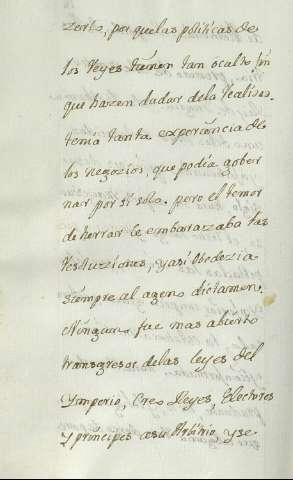 zerto, por quelas politicas de
los reyes tienen tan oculto fin
que hazen dudar dela realidad.
tenia tanta experiencia de
los negozios, que podia gober
nar por si solo. pero el temor
de herrar le embarazaba las
resoluziones, y asi obedezia
siempre al ageno dictamen.
Ninguno fue mas abierto
transgresor delas leyes del
Ymperio, Creo Reyes, Electores
y principes asu Arbitrio y se